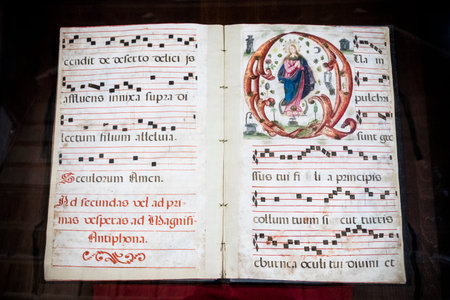 cendit de deserto delicijs
affluens innixa supra di
lectum filium alleluia.
Seculorum Amen.
Ad secundas vel ad pri-
mas vesperas ad Magnifi-
Antiphona.
Q
Pulchri
sunt gre
ssus tui fi li a principis
collum tuum si cut turris
eburnea oculi tui divini et